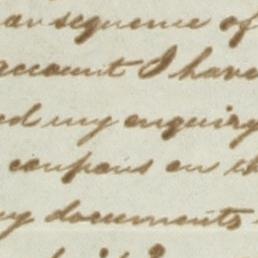 a sequence of
account I have
ed my enquiry
coupons on th
my documents